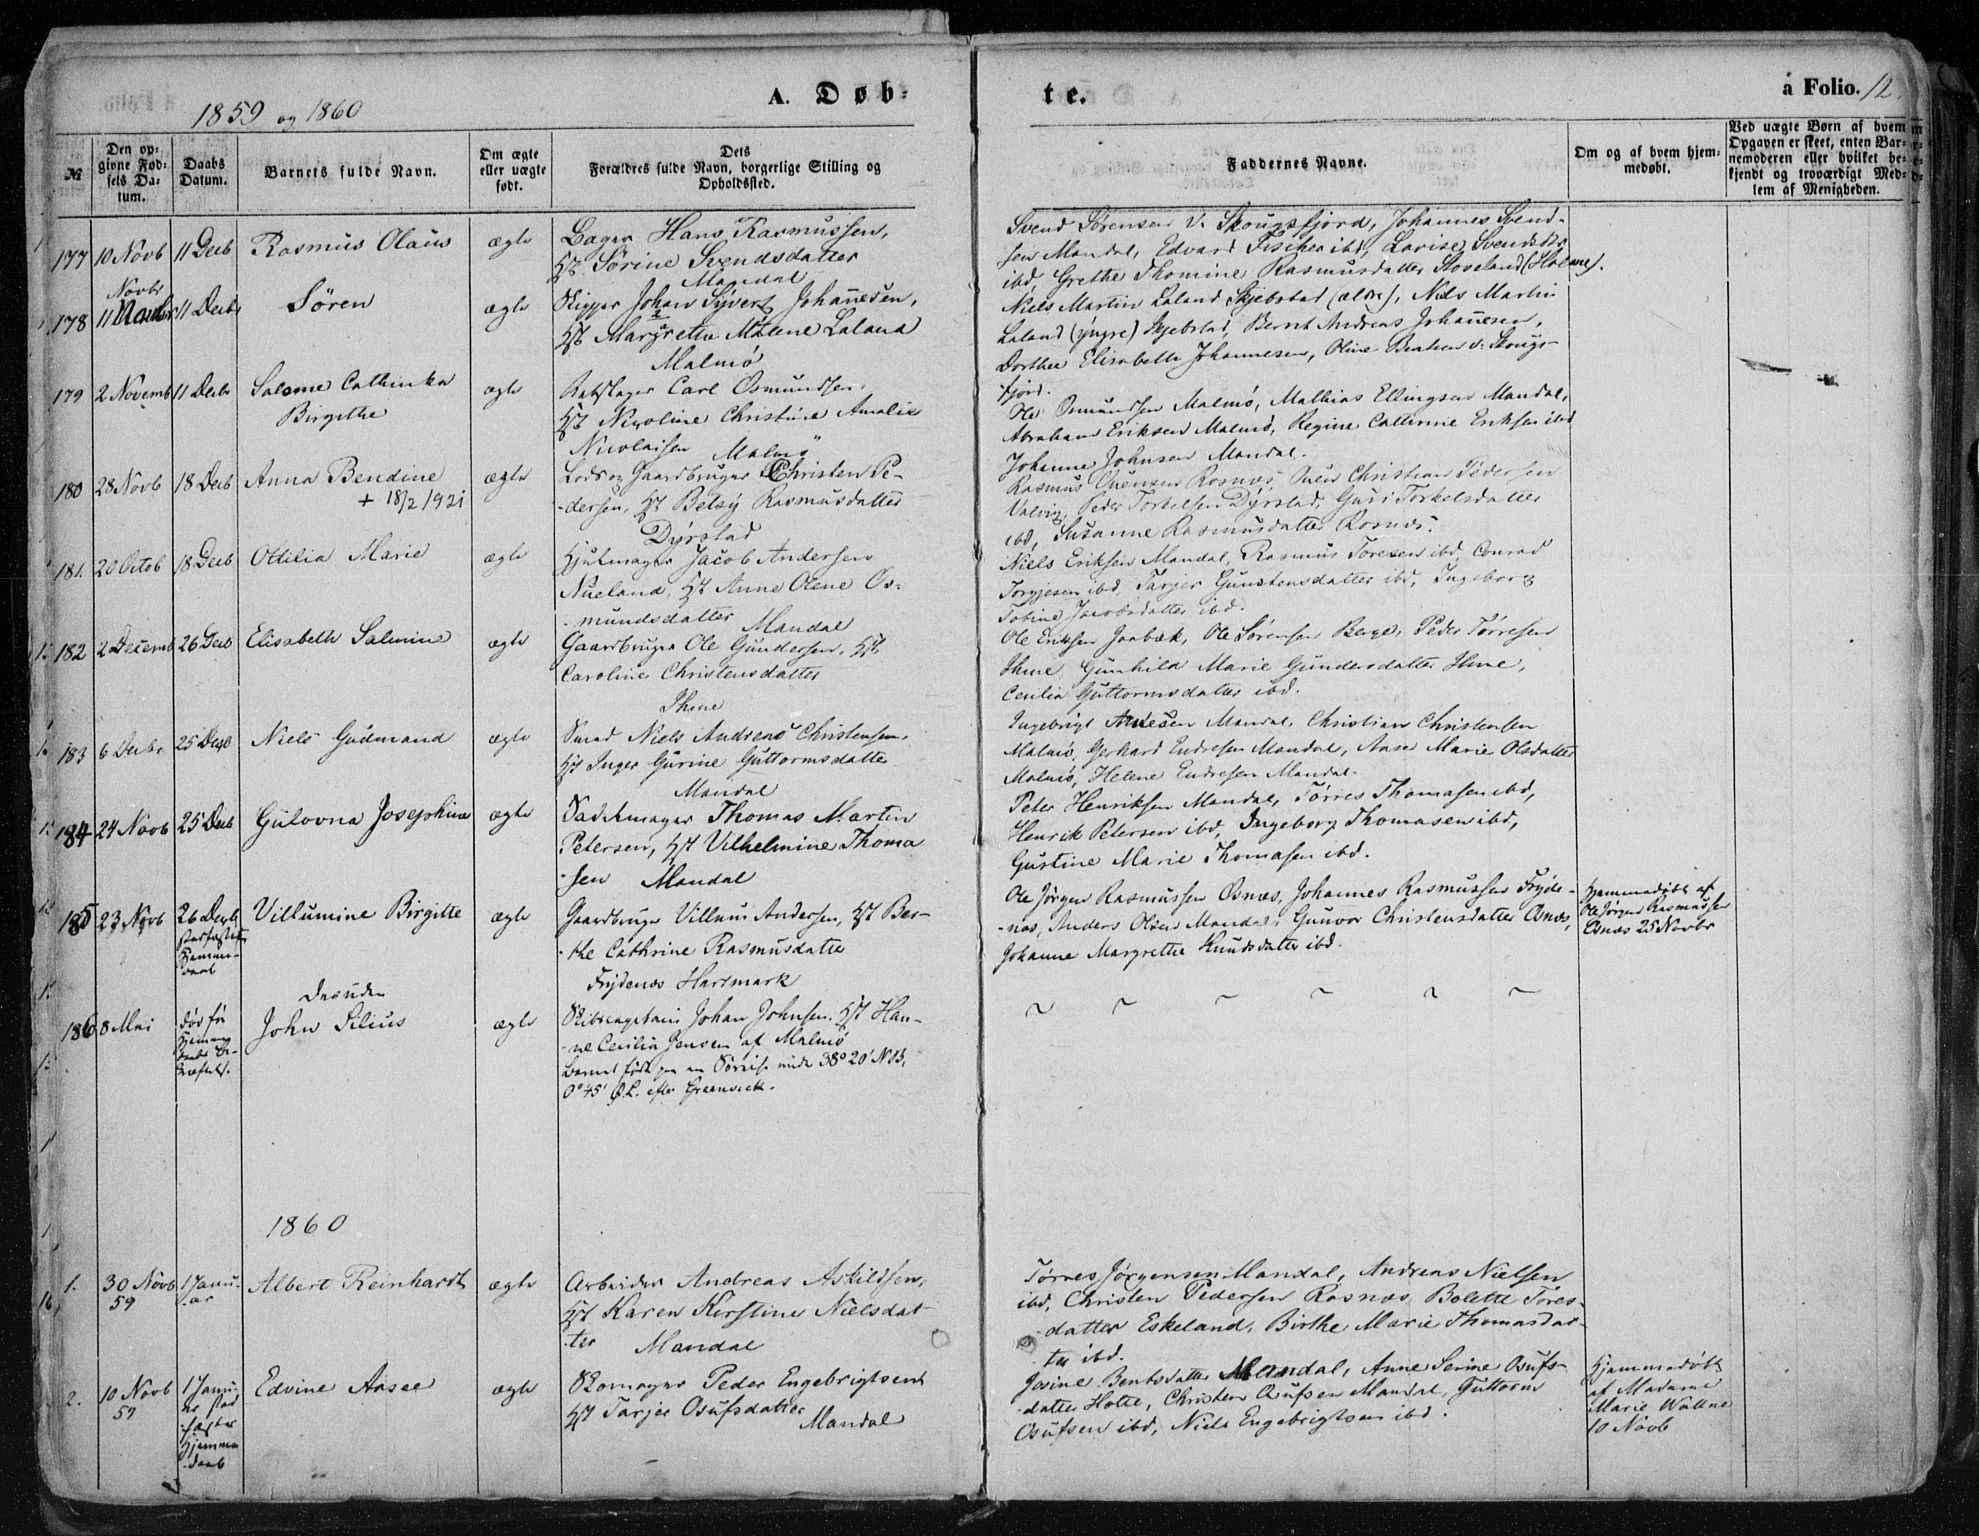 1859 og 1860
A. Døb-
te.
à Folio. 12
№
Den op-
givne Fød-
sels Da-
tum.
Daabs
Datum.
Barnets fulde Navn.
Om ægte
eller uægte
født.
Dets
Forældres fulde Navn, borgerlige Stilling og
Opholdssted.
Faddernes Navne.
Om og af hvem hjem-
medøbt.
Ved uægte Børn af hvem
Opgaven er skeet, enten Bar-
nemoderen eller hvilket be-
kjendt og troværdigt Med-
lem af Menigheden.
177 10 Novb 11 Decb Rasmus Olaus ægte
Bager Hans Rasmussen,
Hst. Sørine Svendsdatter
Mandal
Svend Sørensen V. Skougsfjord, Johannes Svend-
sen Mandal, Edvard Fischer ibd, Lovise Svendsdtr
ibd, Grethe Thomine Rasmusdatter Stoveland (Holme).
178 11 Novbr 11 Decbr Søren ægte
Skipper Johan Syvert Johannesen,
Hst Margrethe Malene Laland
Malmø
Niels Martin Laland Skjebstad (ældre), Niels Martin
Laland (yngre) Skjebstad, Bernt Andreas Johannesen,
Dorthea Elisabeth Johannesen, Oline Bentsen v. Skougs-
fjord.
179 2 Novemb 11 Decbr Salome Cathinka
Birgithe
ægte
Rebslager Carl Osmundsen,
Hst Nicoline Christine Amalie
Nicolaisen Malmø
Ole Osmundsen Malmø, Mathias Ellingsen Mandal,
Abraham Eriksen Malmø, Regine Cathrine Eriksen ibd
Johanne Johnsen Mandal.
180 28 Novb 18 Decb Anna Bendine
+ 18/2 1921
ægte
Lods og Gaardbruger Christen Pe-
-dersen, Hst Betsy Rasmusdatter
Dyrstad
Rasmus Rosnæs, Christian Pedersen
Valvig, Peder Torkelsen Dyrstad, Guri Torkelsdatter
ibd, Susanne Rasmusdatter Rosnæs.
181. 20 Octob 18 Decb Ottilia Marie ægte
Hjulmager Jacob Andersen
Nueland, Hst Anne Olene Os-
-mundsdatter Mandal
Niels Eriksen Mandal, Rasmus Toresen ibd, Conrad
Torgjesen ibd, Tarjer Gunstensdatter ibd, Ingeborg
Tobine Jacobsdatter ibd.
182 2 Decemb 26 Decb Elisabeth Salmine ægte
Gaardbruger Ole Gundersen, Hst
Caroline Christensdatter
Ihme
Ole Eriksen Jaabæk, Ole Sørensen Berge, Peder Tørresen
Ihme, Gunhild Marie Gundersdatter Ihme,
Cecilia Guttormsdatter ibd.
183 6 Decbr 25 Decb Niels Gudmand ægte
Smed Niels Andreas Christensen,
Hst Inger Gurine Guttormsdatter
Mandal
Ingebrigt Mandal, Christian Christensen
Malmø, Gerhard Endresen Mandal, Aase Marie Olsdatter
Malmø, Helene Endresen Mandal.
184 24 Novb 25 Decb Gulovna Josephine ægte
Sadelmager Thomas Martin
Petersen, Hst Vilhelmine Thoma
-sen Mandal
Peter Henriksen Mandal, Tørres Thomasen ibd,
Henrik Petersen ibd, Ingeborg Thomasen ibd,
Gustine Marie Thomasen ibd.
185 23 Novb 26 Decb
stadfæstet
Hjemme-
daab
Villumine Birgitte ægte
Gaardbruger Villum Andersen, Hst Ber-
-the Cathrine Rasmusdatter
Frydenæs Hartmark
Ole Jørgen Rasmussen Osnæs, Johannes Rasmussen Fryde-
-næs, Anders Olsen Mandal, Gunvor Christensdatter Osnæs,
Johanne Margrethe Knudsdatter ibd.
Hjemmedøbt af
Ole Jørgen Rasmussen
Osnæs 25 Novbr
186 8 Mai død før
John Silius ægte
Skibscaptain Johan Johnsen, Hst Han-
-ne Cecilia Jensen af Malmø
Barnet født paa en Sørejse under 38° 20' N.B,
0° 45' Ø.L. efter Greenwich.
1860
1. 30 Novb
59
1 Janu-
ar
Albert Reinhardt ægte
Arbeider Andreas Askildsen,
Hst Karen Kirstine Nielsdat-
-ter Mandal
Tørres Jørgensen Mandal, Andreas Nielsen
ibd, Christen Pedersen Rosnæs, Bolette Tores-
-datter Eskeland, Birthe Marie Thomasdat-
-ter ibd.
2. 10 Novb
59
1 Janu-
ar stad
-fæstet
Hjemme
-daab
Edvine Aasee ægte
Skomager Peder Engebrigtsen
Hst Tarjer Osufsdatter
Mandal
Josine Berntsdatter Mandal, Anne Serine Osufs-
-datter Holte, Christen Osufsen Mandal, Guttorm
Osufsen ibd, Niels Engebrigtsen ibd.
Hjemmedøbt
af Madame
Marie Wattne
10 Novb